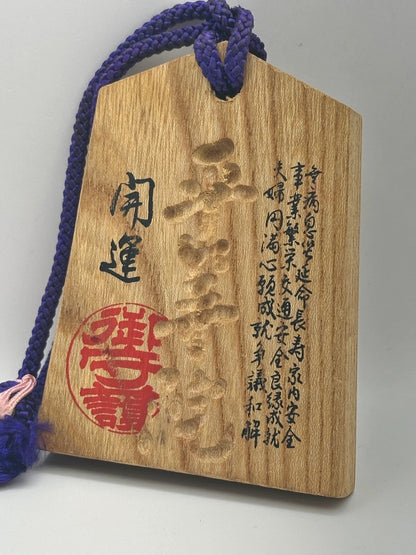 無病息災延命長寿家内安全
事業繁栄交通安全良縁成就
夫婦円満心願成就争議和解
開運